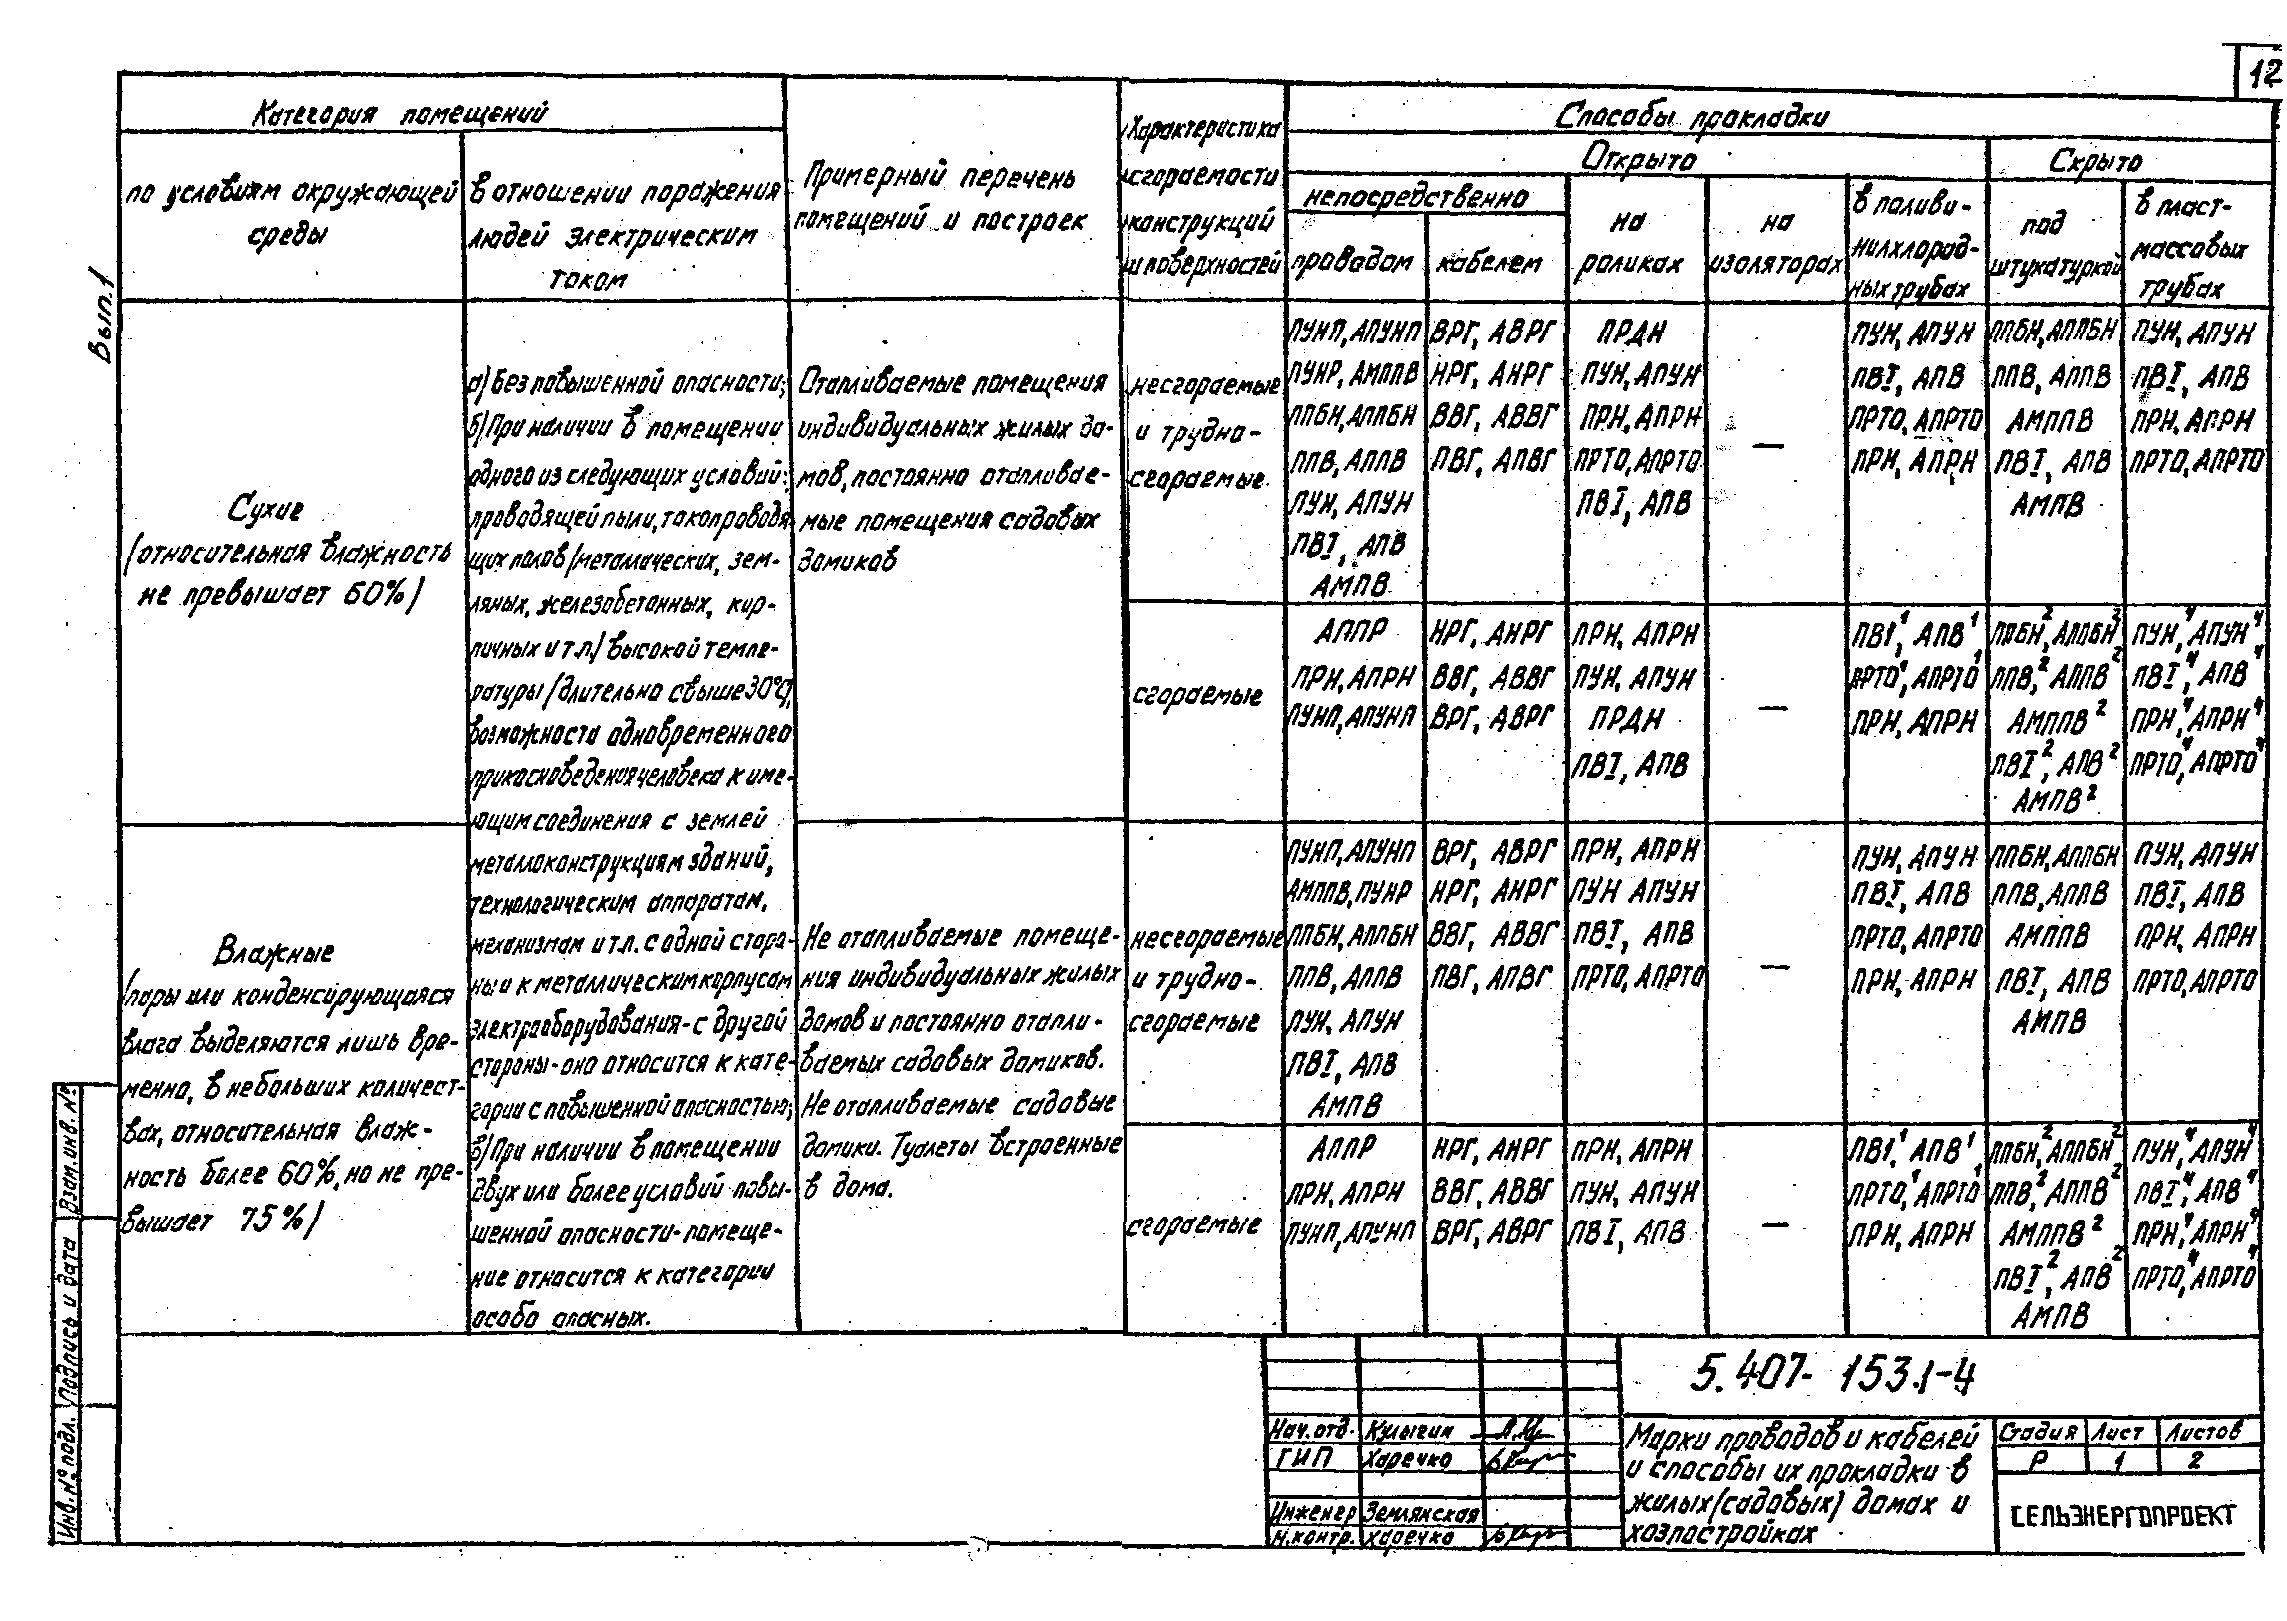 12
Вып.1
Категория помещений
по условиям окружающей
среды
в отношении поражения
людей электрическим
током
Примерный перечень
помещений и построек
Характеристика
сгораемости
конструкций
и поверхностей
Способы прокладки
Открыто
Скрыто
непосредственно
проводом
кабелем
на
роликах
на
изоляторах
в поливи-
нилхлорид-
ных трубах
под
штукатуркой
в пласт-
массовых
трубах
Сухие
(относительная влажность
не превышает 60%)
а) Без повышенной опасности;
б) При наличии в помещении
одного из следующих условий:
проводящей пыли, токопроводя
щих полов (металлических, зем-
ляных, железобетонных, кир-
пичных и т.п.) высокой темпе-
ратуры (длительно свыше 30°С),
возможности одновременного
прикосновения человека к име-
ющим соединения с землей
металлоконструкциям зданий,
технологическим аппаратам,
механизмам и т.п. с одной сторо-
ны и к металлическим корпусам
электрооборудования - с другой
стороны - оно относится к кате-
гории с повышенной опасностью;
в) При наличии в помещении
двух или более условий повы-
шенной опасности - помеще-
ние относится к категории
особо опасных.
Отапливаемые помещения
индивидуальных жилых до-
мов, постоянно отапливае-
мые помещения садовых
домиков
несгораемые
и трудно-
сгораемые
ПУНП, АПУНП
ПУНР, АМППВ
ППБН, АППБН
ППВ, АППВ
ПУН, АПУН
ПВI, АПВ
АМПВ
ВРГ, АВРГ
НРГ, АНРГ
ВВГ, АВВГ
ПВГ, АПВГ
ПРДН
ПУН, АПУН
ПРН, АПРН
ПРТО, АПРТО
ПВI, АПВ
—
ПУН, АПУН
ПВI, АПВ
ПРТО, АПРТО
ПРН, АПРН
ППБН, АППБН
ППВ, АППВ
АМППВ
ПВI, АПВ
АМПВ
ПУН, АПУН
ПВI, АПВ
ПРН, АПРН
ПРТО, АПРТО
сгораемые
АППР
ПРН, АПРН
ПУНП, АПУНП
НРГ, АНРГ
ВВГ, АВВГ
ВРГ, АВРГ
ПРН, АПРН
ПУН, АПУН
ПРДН
ПВI, АПВ
—
ПВ1,¹ АПВ¹
ПРТО,¹ АПРТО¹
ПРН, АПРН
ППБН,² АППБН²
ППВ,² АППВ²
АМППВ²
ПВI,² АПВ²
АМПВ²
ПУН,⁴ АПУН⁴
ПВI,⁴ АПВ⁴
ПРН,⁴ АПРН⁴
ПРТО,⁴ АПРТО⁴
Влажные
(пары или конденсирующаяся
влага выделяются лишь вре-
менно, в небольших количест-
вах, относительная влаж-
ность более 60%, но не пре-
вышает 75%)
Не отапливаемые помеще-
ния индивидуальных жилых
домов и постоянно отапли-
ваемых садовых домиков.
Не отапливаемые садовые
домики. Туалеты встроенные
в дома.
несгораемые
и трудно-
сгораемые
ПУНП, АПУНП
АМППВ, ПУНР
ППБН, АППБН
ППВ, АППВ
ПУН, АПУН
ПВI, АПВ
АМПВ
ВРГ, АВРГ
НРГ, АНРГ
ВВГ, АВВГ
ПВГ, АПВГ
ПРН, АПРН
ПУН АПУН
ПВI, АПВ
ПРТО, АПРТО
—
ПУН, АПУН
ПВI, АПВ
ПРТО, АПРТО
ПРН, АПРН
ППБН, АППБН
ППВ, АППВ
АМППВ
ПВI, АПВ
АМПВ
ПУН, АПУН
ПВI, АПВ
ПРН, АПРН
ПРТО, АПРТО
сгораемые
АППР
ПРН, АПРН
ПУНП, АПУНП
НРГ, АНРГ
ВВГ, АВВГ
ВРГ, АВРГ
ПРН, АПРН
ПУН, АПУН
ПВI, АПВ
—
ПВ1,¹ АПВ¹
ПРТО,¹ АПРТО¹
ПРН, АПРН
ППБН,² АППБН²
ППВ,² АППВ²
АМППВ²
ПВI,² АПВ²
АМПВ
ПУН,⁴ АПУН⁴
ПВI,⁴ АПВ⁴
ПРН,⁴ АПРН⁴
ПРТО,⁴ АПРТО⁴
Взам. инв. №
Подпись и дата
Инв. № подл.
5.407-153.1-4
Нач. отд. Кулыгин
ГИП Харечко
Инженер Землянская
Н. контр. Харечко
Марки проводов и кабелей
и способы их прокладки в
жилых (садовых) домах и
хозпостройках
Стадия Лист Листов
Р 1 2
СЕЛЬЭНЕРГОПРОЕКТ